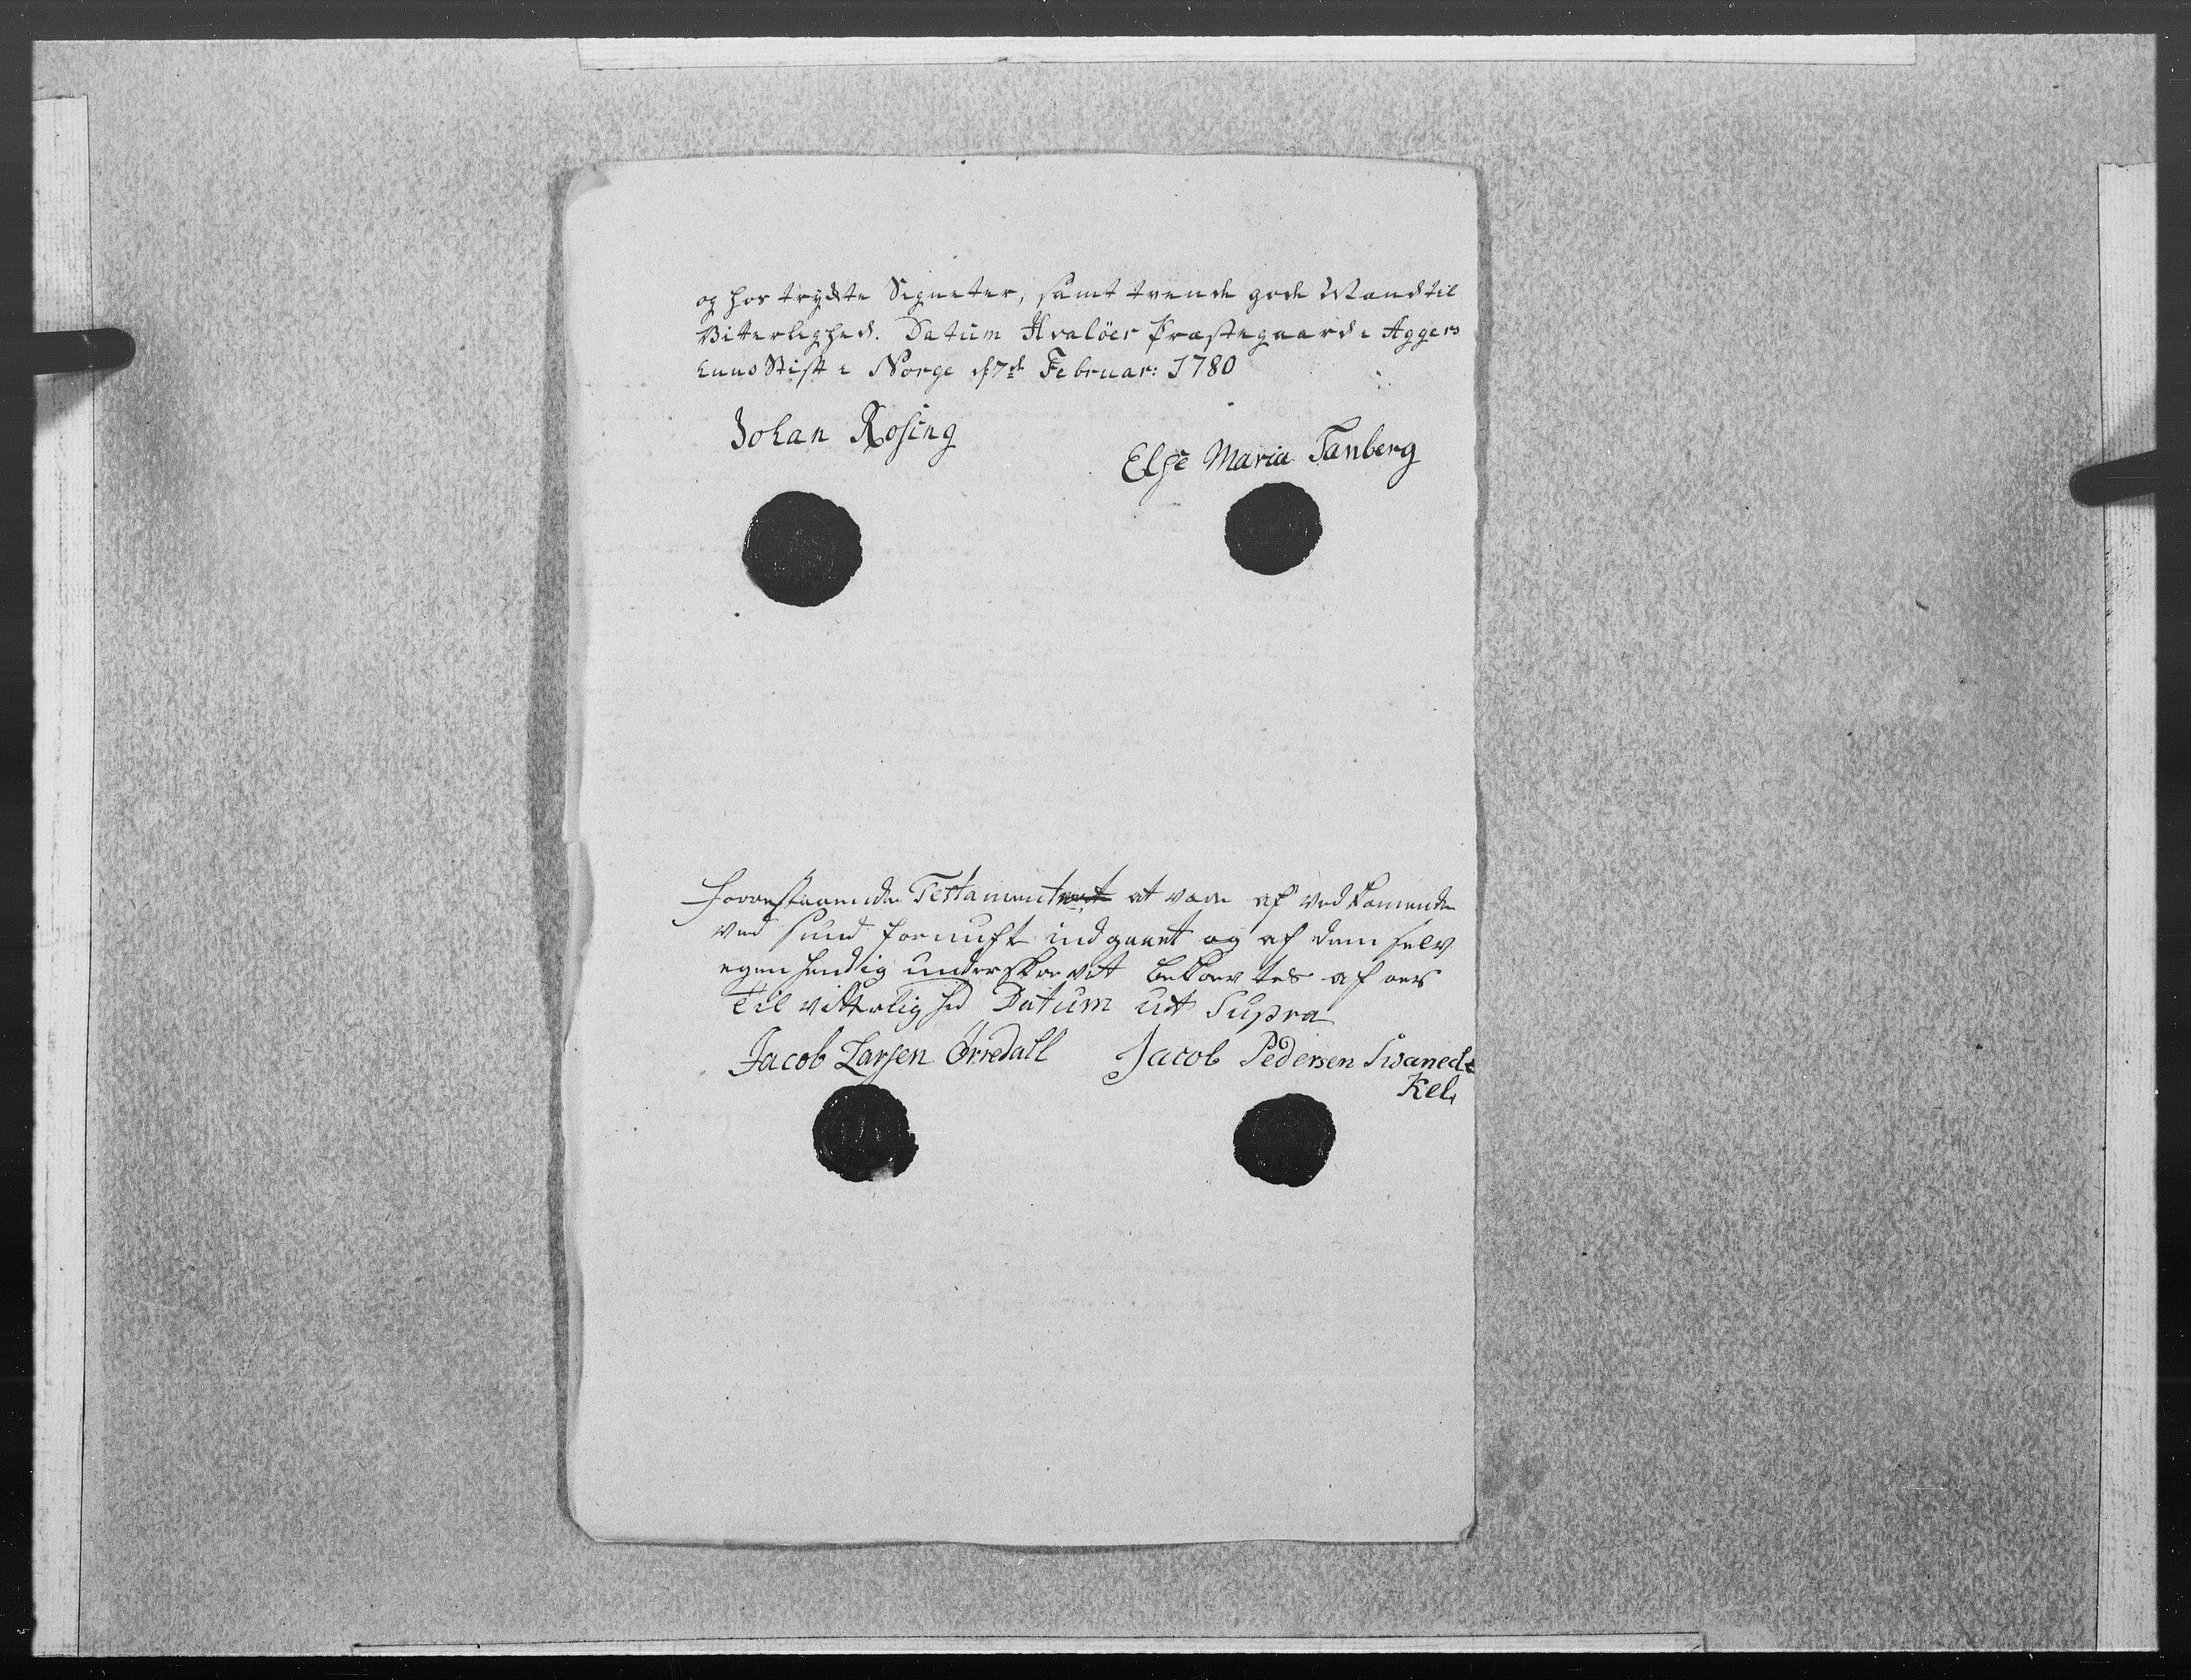 og hos trykte Signeter, samt tvende gode Mænd til
Vitterlighed. Datum Hvalöer Præstegaard i Aggers
huus Stift i Norge d 7de Februar: 1780
Johan Rosing
Else Maria Tanberg
Forrestaaende Testament at være af vedkomende
ved sund fornuft indgaaet og af dem selv
egenhendig underskrevet bekræftes af oes
til vitterlighed Datum ut Supra
Jacob Larsen Örredall Jacob Pedersen Swaneck
Kel